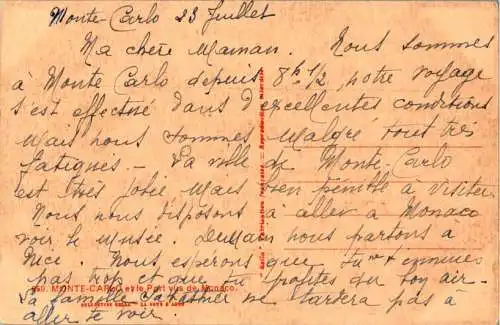 Monte-Carlo 23 Juillet
Ma chère Maman. Nous sommes
à Monte Carlo depuis 8h 1/2, notre voyage
s'est effectué dans d'excellentes conditions
Mais nous sommes Malgré tout très
fatigués - La ville de Monte-Carlo
est très jolie Mais bien pénible à visiter
Nous nous disposons a aller a Monaco
voir le Musée. Demain nous partons a
Nice. Nous espérons que tu ne t'ennuies
pas trop et que tu profites du bon air-
La famille ne tardera pas a
aller te voir.
MONTE-CARLO et le Port vus de Monaco.
Fabrication Française - Reproduction interdite